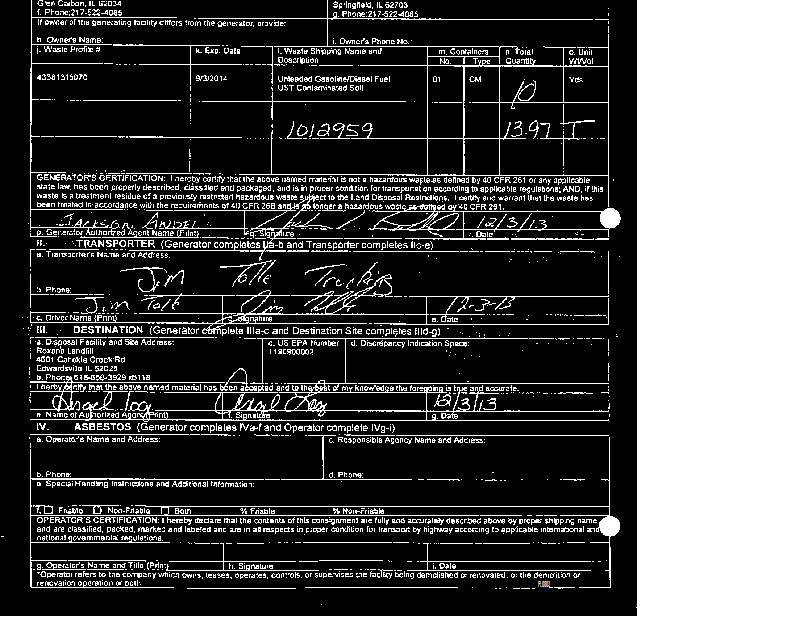 Glen Carbon, IL 62034 Springfield, IL 62703
f. Phone: 217-522-4085 g. Phone: 217-522-4085
If owner of the generating facility differs from the generator, provide:
h. Owner's Name: i. Owner's Phone No.:
j. Waste Profile # k. Exp. Date l. Waste Shipping Name and Description m. Containers No. Type n. Total Quantity o. Unit Wt/Vol
9/3/2014 Unleaded Gasoline/Diesel Fuel 01 CM 10 Yds
UST Contaminated Soil
1012959 13.97 T
GENERATOR'S CERTIFICATION: I hereby certify that the above named material is not a hazardous waste as defined by 40 CFR 261 or any applicable
state law, has been properly described, classified and packaged, and is in proper condition for transportation according to applicable regulations; AND, if this
waste is a treatment residue of a previously restricted hazardous waste subject to the Land Disposal Restrictions, I certify and warrant that the waste has
been treated in accordance with the requirements of 40 CFR 268 and is no longer a hazardous waste as defined by 40 CFR 261.
12/3/13
p. Generator Authorized Agent Name (Print) q. Signature r. Date
II. TRANSPORTER (Generator completes IIa-b and Transporter completes IIc-e)
a. Transporter's Name and Address:
Jim Tolle Trucking
b. Phone:
Jim 12-3-13
c. Driver Name (Print) d. Signature e. Date
III. DESTINATION (Generator complete IIIa-c and Destination Site completes IIId-g)
a. Disposal Facility and Site Address: c. US EPA Number d. Discrepancy Indication Space:
Roxana Landfill
4601 Cahokia Creek Rd
Edwardsville IL 62025
b. Phone:
I hereby certify that the above named material has been accepted and to the best of my knowledge the foregoing is true and accurate.
12/3/13
e. Name of Authorized Agent (Print) f. Signature g. Date
IV. ASBESTOS (Generator completes IVa-f and Operator complete IVg-i)
a. Operator's Name and Address: c. Responsible Agency Name and Address:
b. Phone: d. Phone:
e. Special Handling Instructions and Additional Information:
f. Friable Non-Friable Both % Friable % Non-Friable
OPERATOR'S CERTIFICATION: I hereby declare that the contents of this consignment are fully and accurately described above by proper shipping name
and are classified, packed, marked and labeled and are in all respects in proper condition for transport by highway according to applicable international and
national governmental regulations.
g. Operator's Name and Title (Print) h. Signature i. Date
*Operator refers to the company which owns, leases, operates, controls, or supervises the facility being demolished or renovated, or the demolition or
renovation operation or both